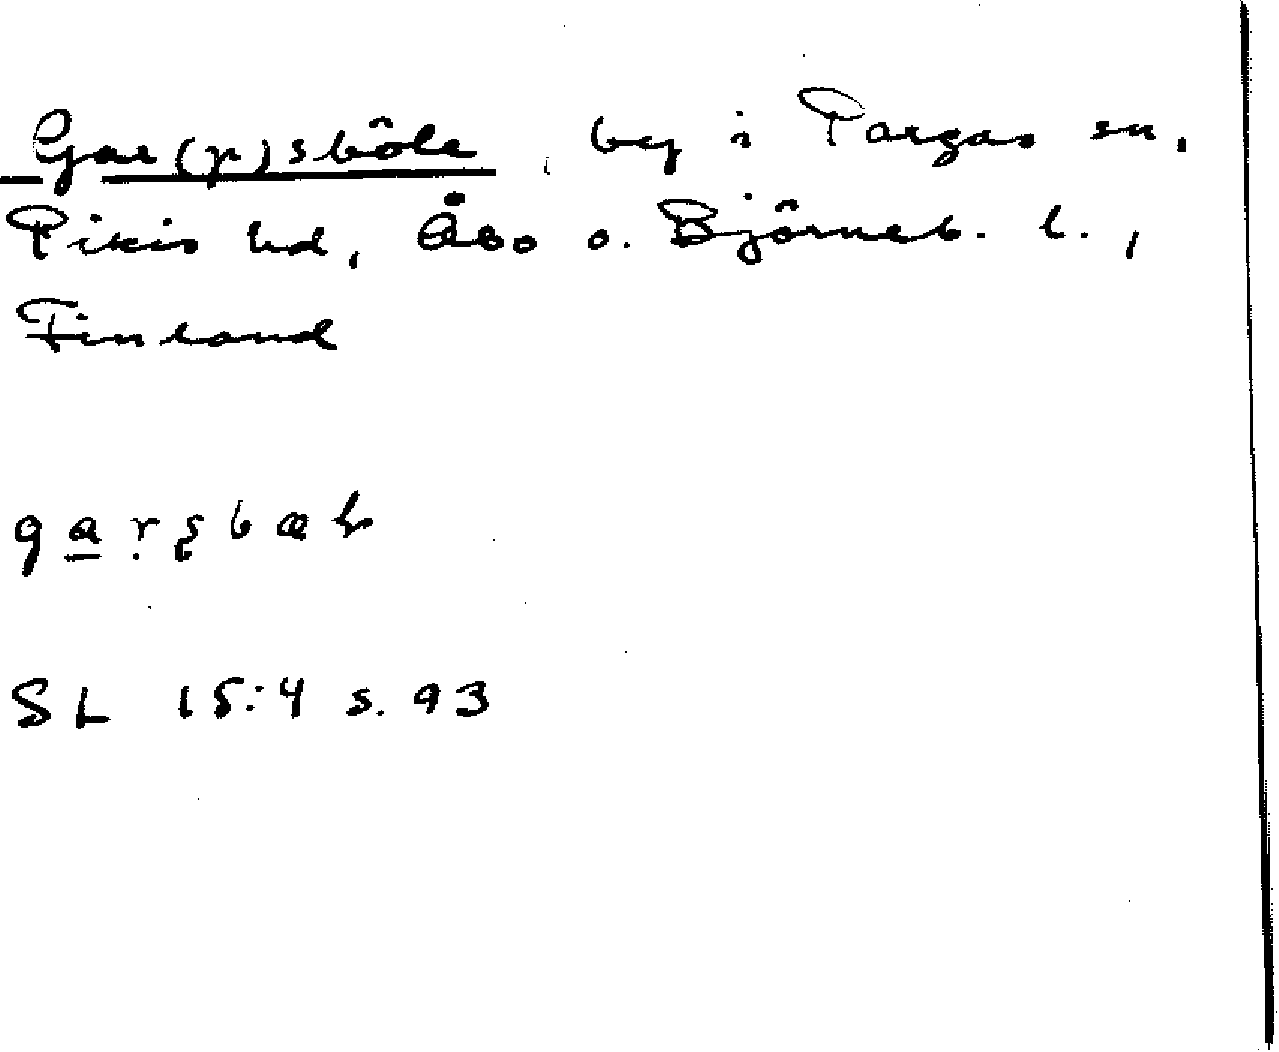 Gar(p)sböle, by i Pargas sn,
Pikis hd, Åbo o. Björneb. l.,
Finland
SL 15:4 s. 93